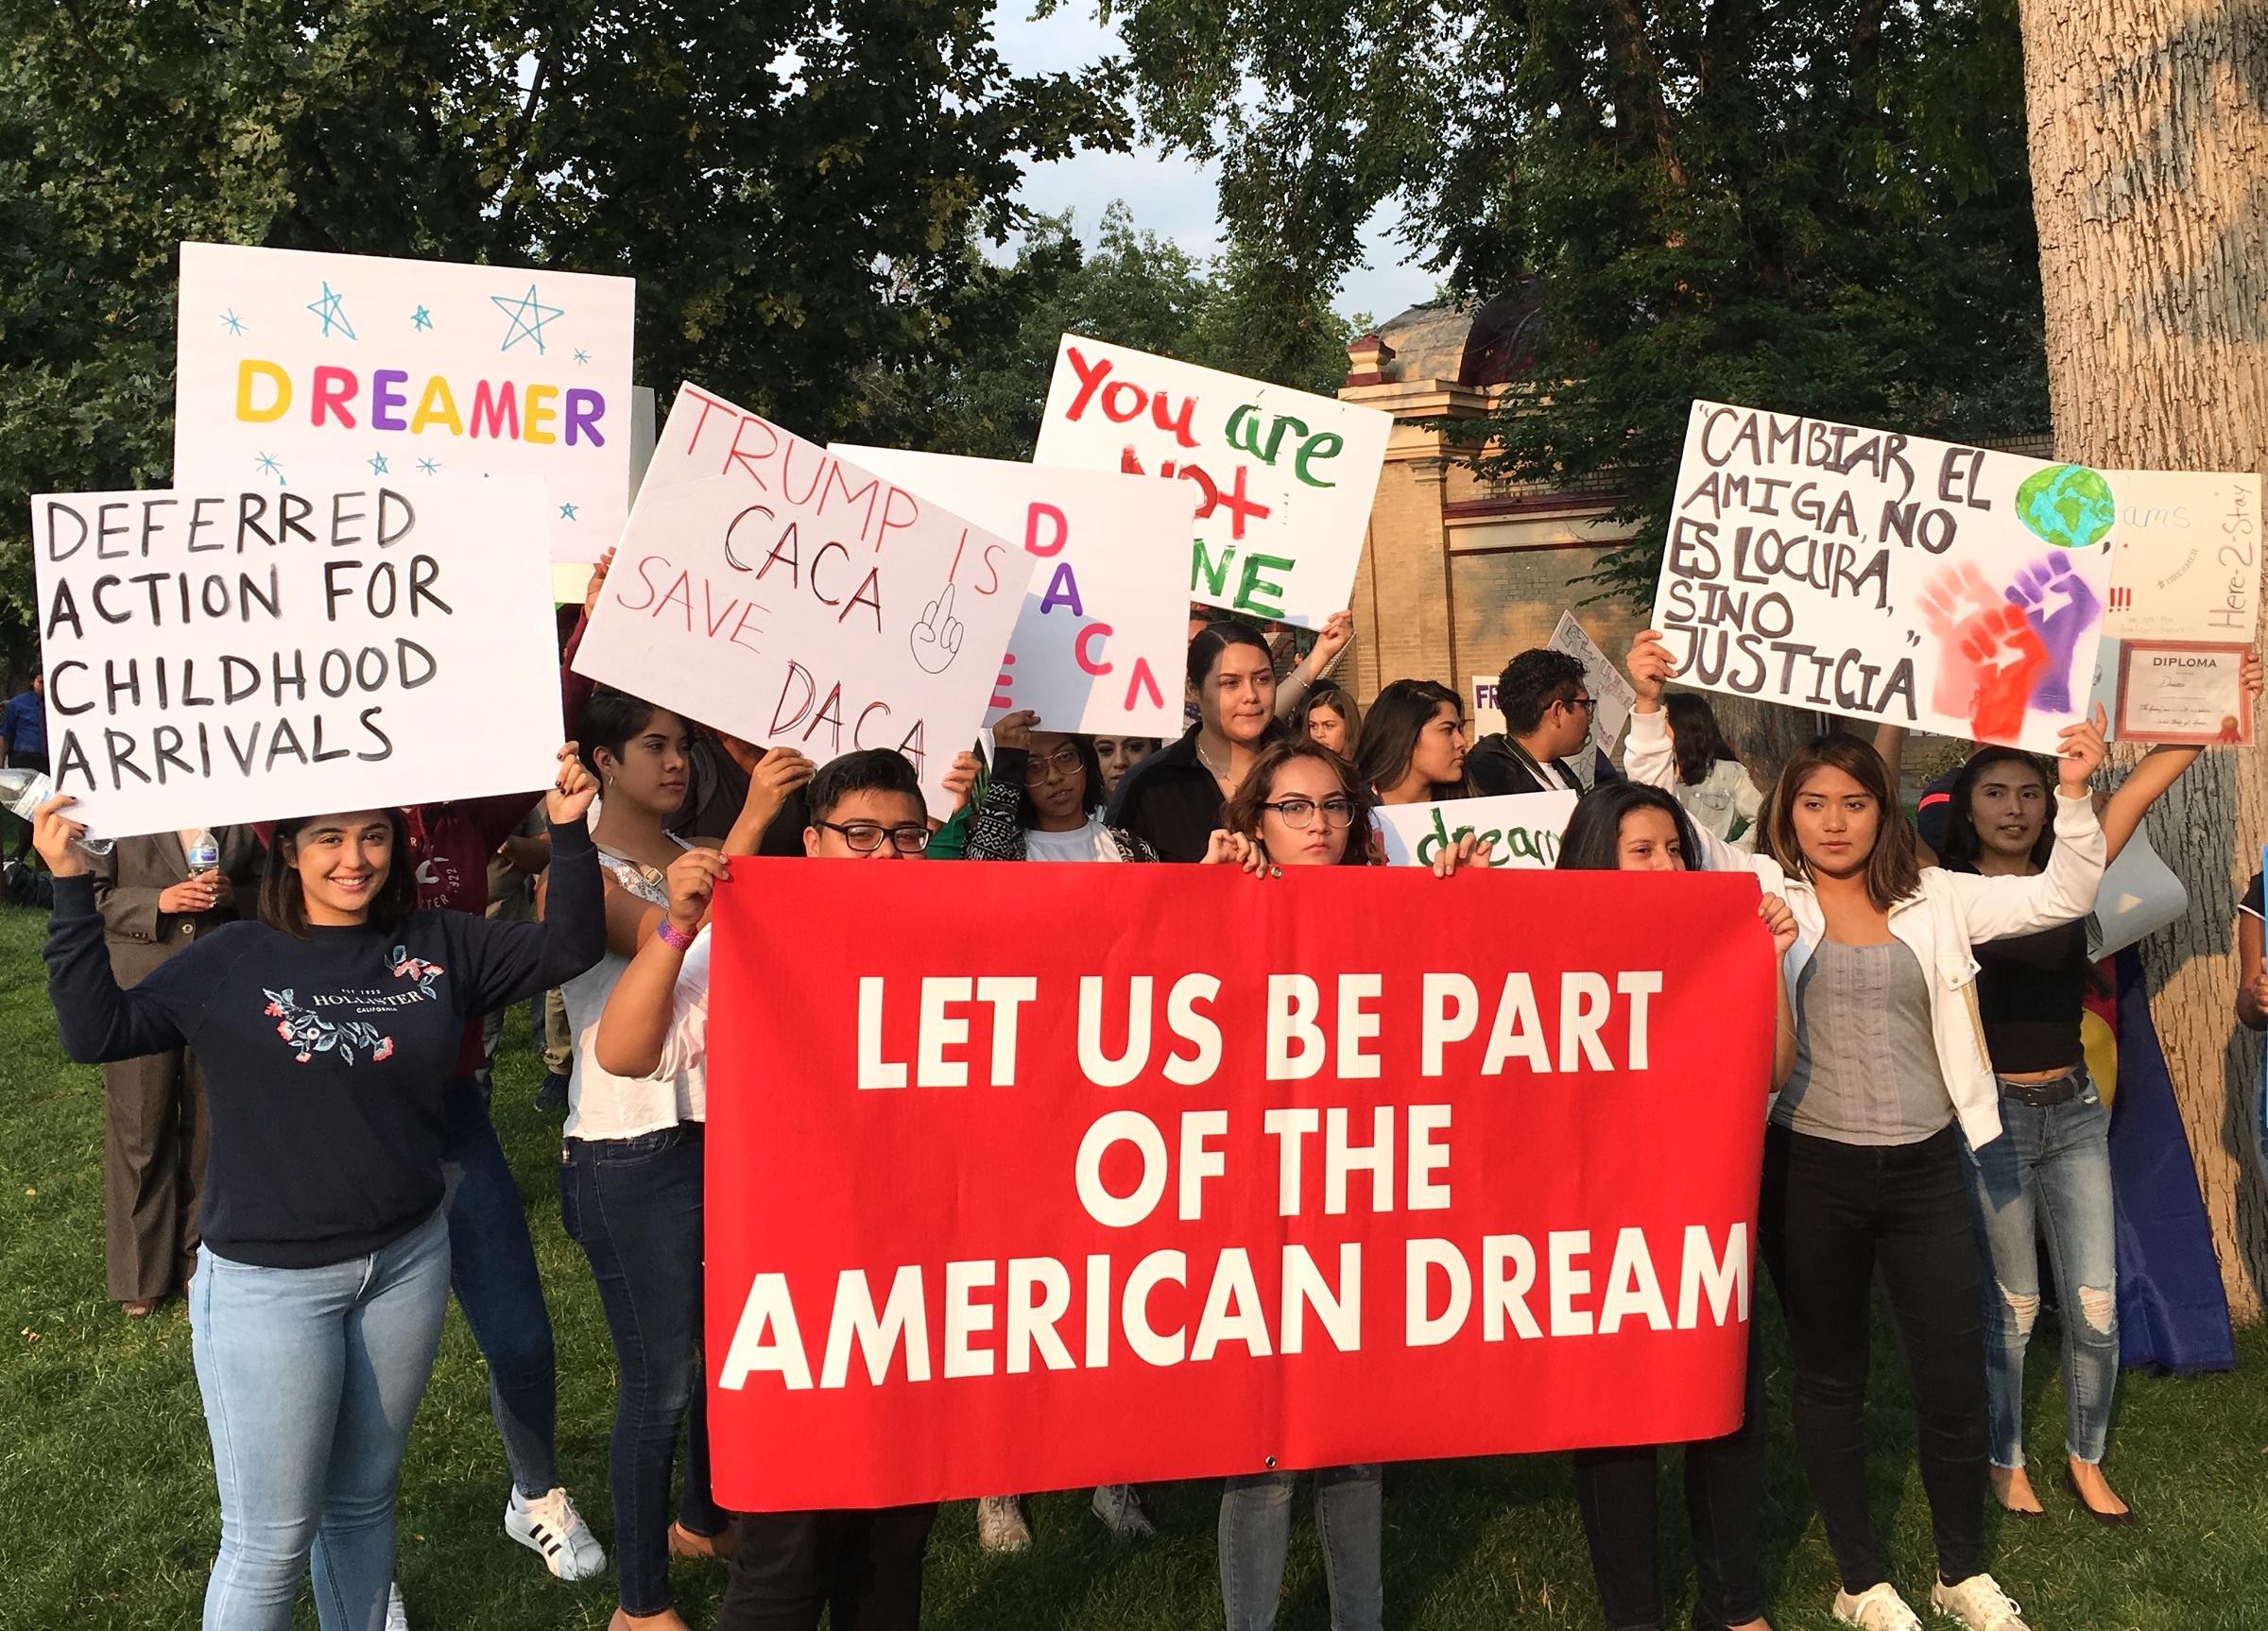 DREAMER
DEFERRED
ACTION FOR
CHILDHOOD
ARRIVALS
TRUMP IS
CACA
SAVE
DACA
D
A
C
A
E
You are
NOt
NE
"CAMBIAR EL
AMIGA, NO
ES LOCURA,
SINO
JUSTICIA"
ams
!!!
#DREAMER
Here-2-Stay
DIPLOMA
FR
dream
EST 1922
HOLLISTER
CALIFORNIA
LET US BE PART
OF THE
AMERICAN DREAM